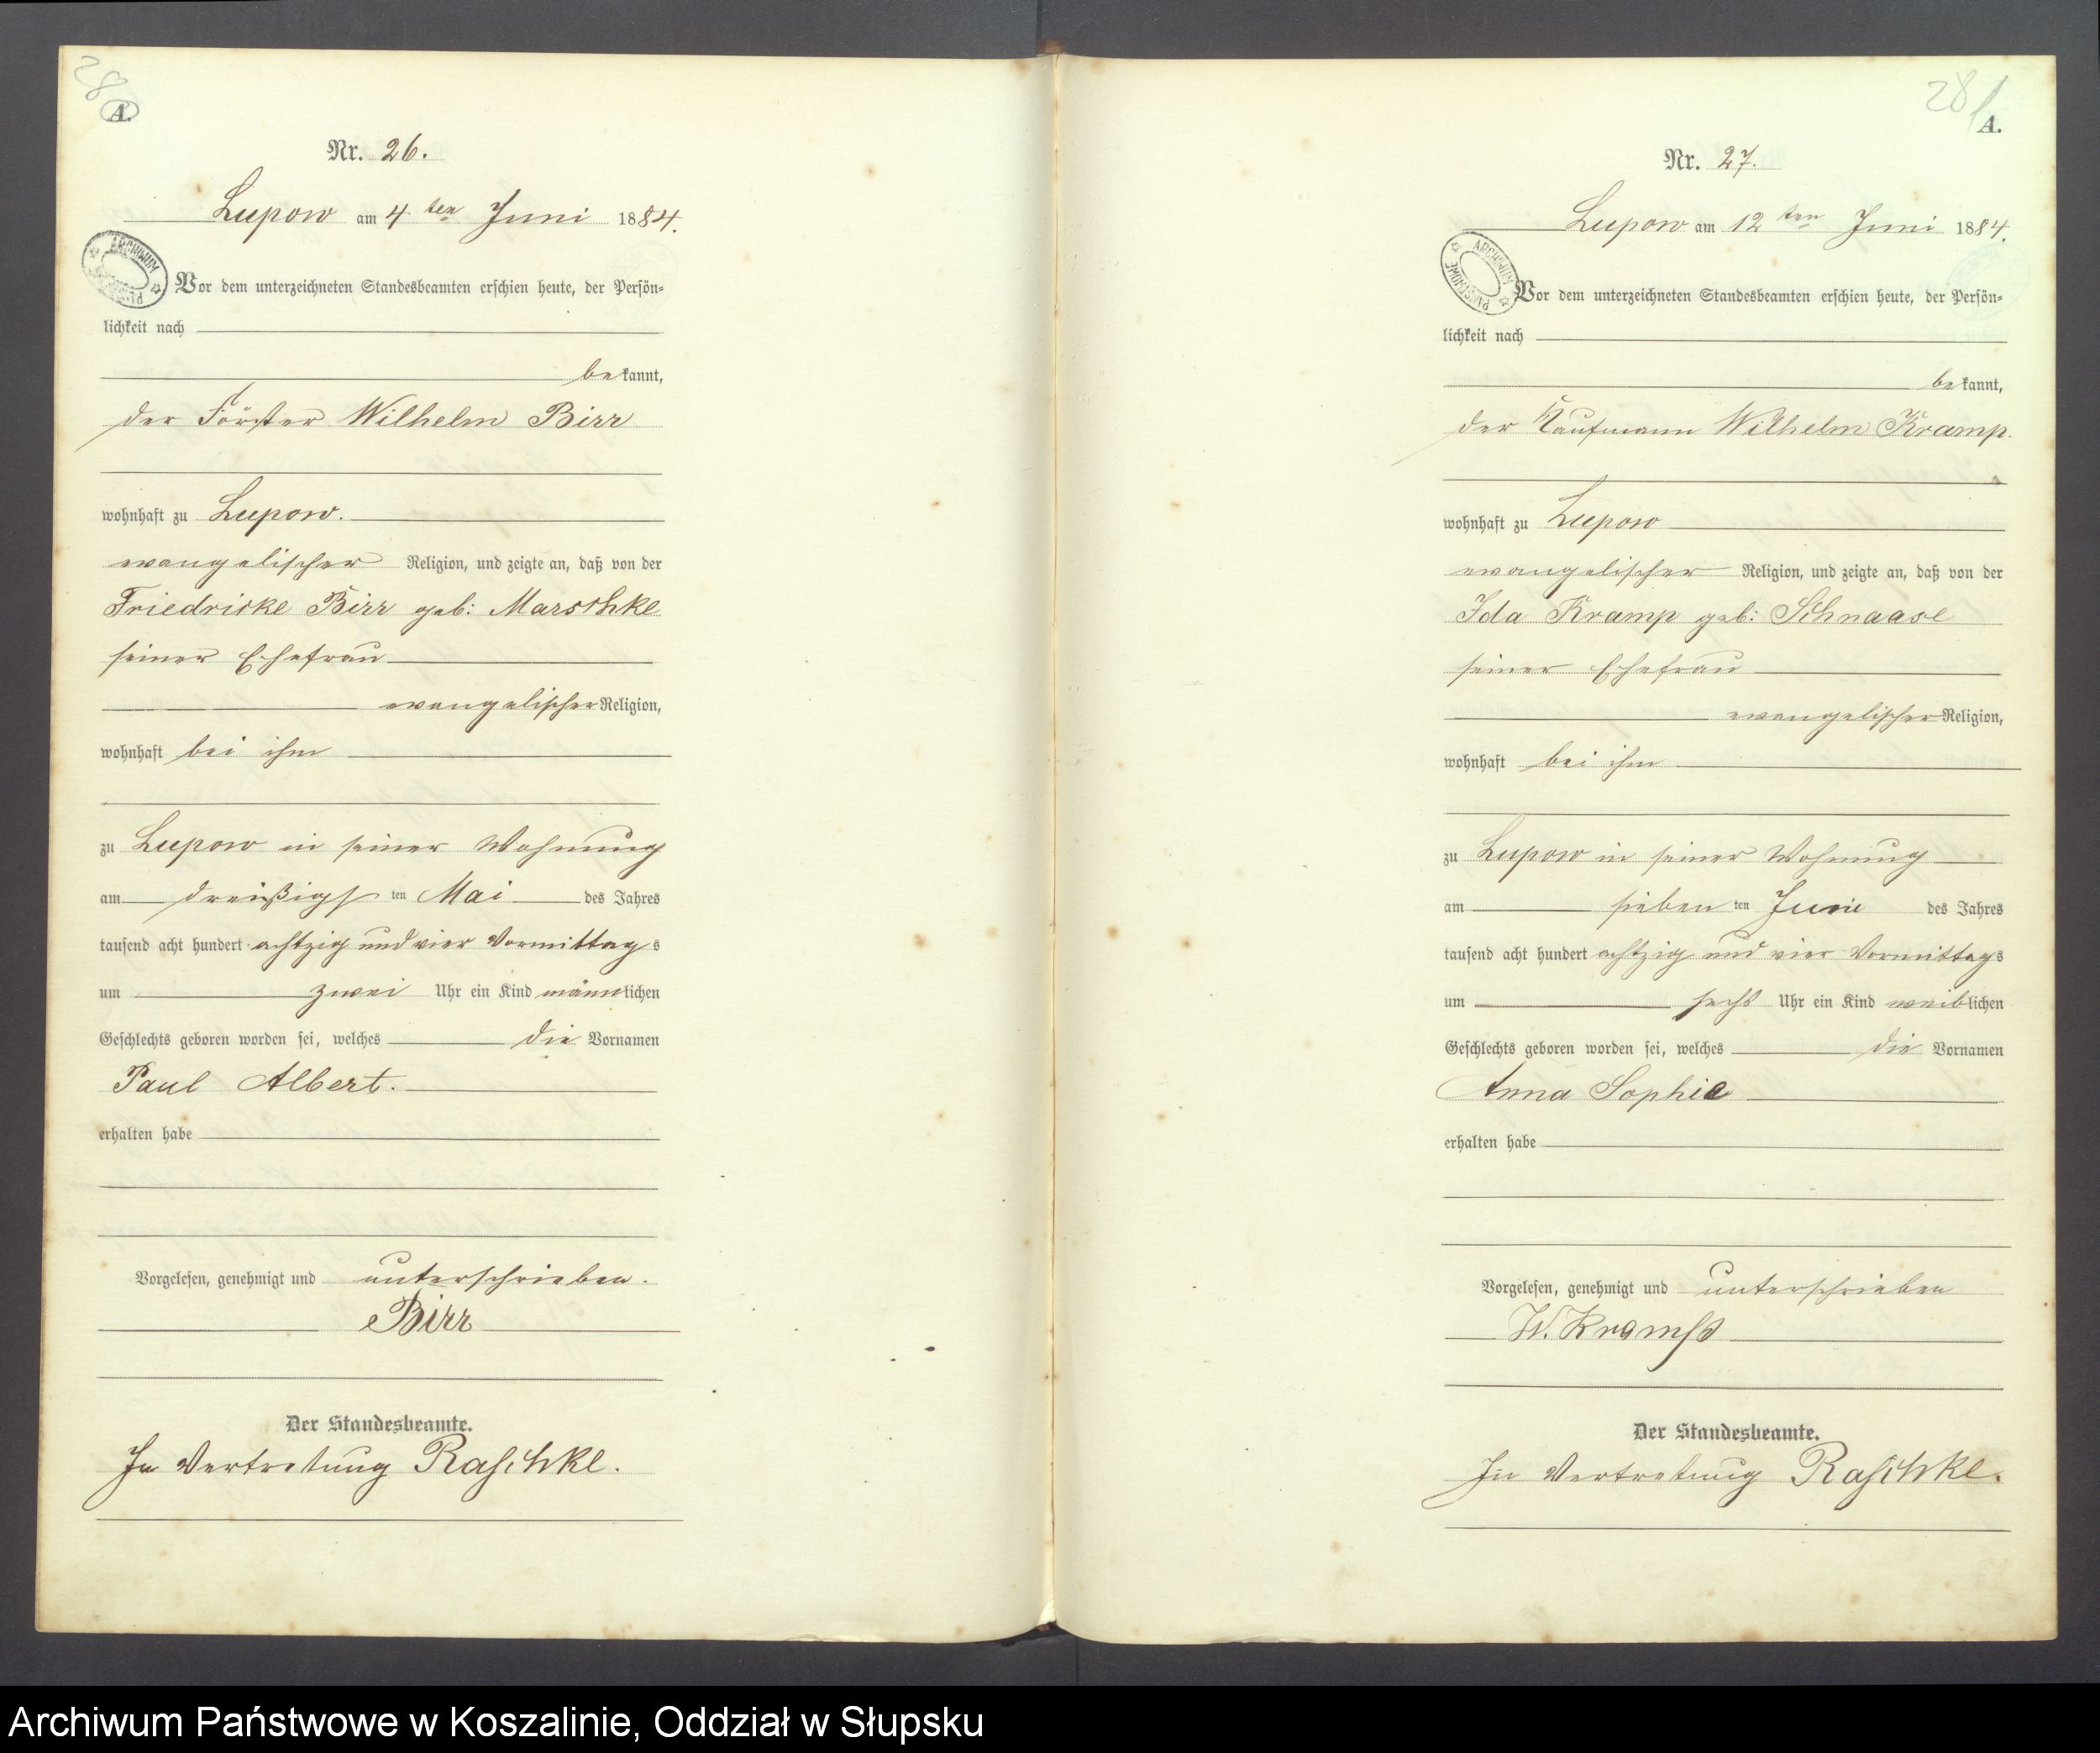 28
A.
Nr. 26.
Lupow am 4 ten Juni 1884.
ARCHIWUM PAŃSTWOWE
Vor dem unterzeichneten Standesbeamten erschien heute, der Persön-
lichkeit nach
bekannt,
der Förster Wilhelm Birr
wohnhaft zu Lupow.
evangelischer Religion, und zeigte an, daß von der
Friedricke Birr geb: Marschke
seiner Ehefrau
evangelischer Religion,
wohnhaft bei ihm
zu Lupow in seiner Wohnung
am dreißigsten Mai des Jahres
tausend acht hundert achtzig und vier Vormittags
um zwei Uhr ein Kind männlichen
Geschlechts geboren worden sei, welches die Vornamen
Paul Albert.
erhalten habe
Vorgelesen, genehmigt und unterschrieben.
Birr
Der Standesbeamte.
In Vertretung Raschke.
28
A.
Nr. 27.
Lupow am 12 ten Juni 1884.
ARCHIWUM PAŃSTWOWE
Vor dem unterzeichneten Standesbeamten erschien heute, der Persön-
lichkeit nach
bekannt,
der Kaufmann Wilhelm Kramp.
wohnhaft zu Lupow
evangelischer Religion, und zeigte an, daß von der
Ida Kramp geb: Schnaase
seiner Ehefrau
evangelischer Religion,
wohnhaft bei ihm
zu Lupow in seiner Wohnung
am siebenten Juni des Jahres
tausend acht hundert achtzig und vier Vormittags
um sechs Uhr ein Kind weiblichen
Geschlechts geboren worden sei, welches die Vornamen
Anna Sophie
erhalten habe
Vorgelesen, genehmigt und unterschrieben
W. Kramp
Der Standesbeamte.
In Vertretung Raschke.
Archiwum Państwowe w Koszalinie, Oddział w Słupsku